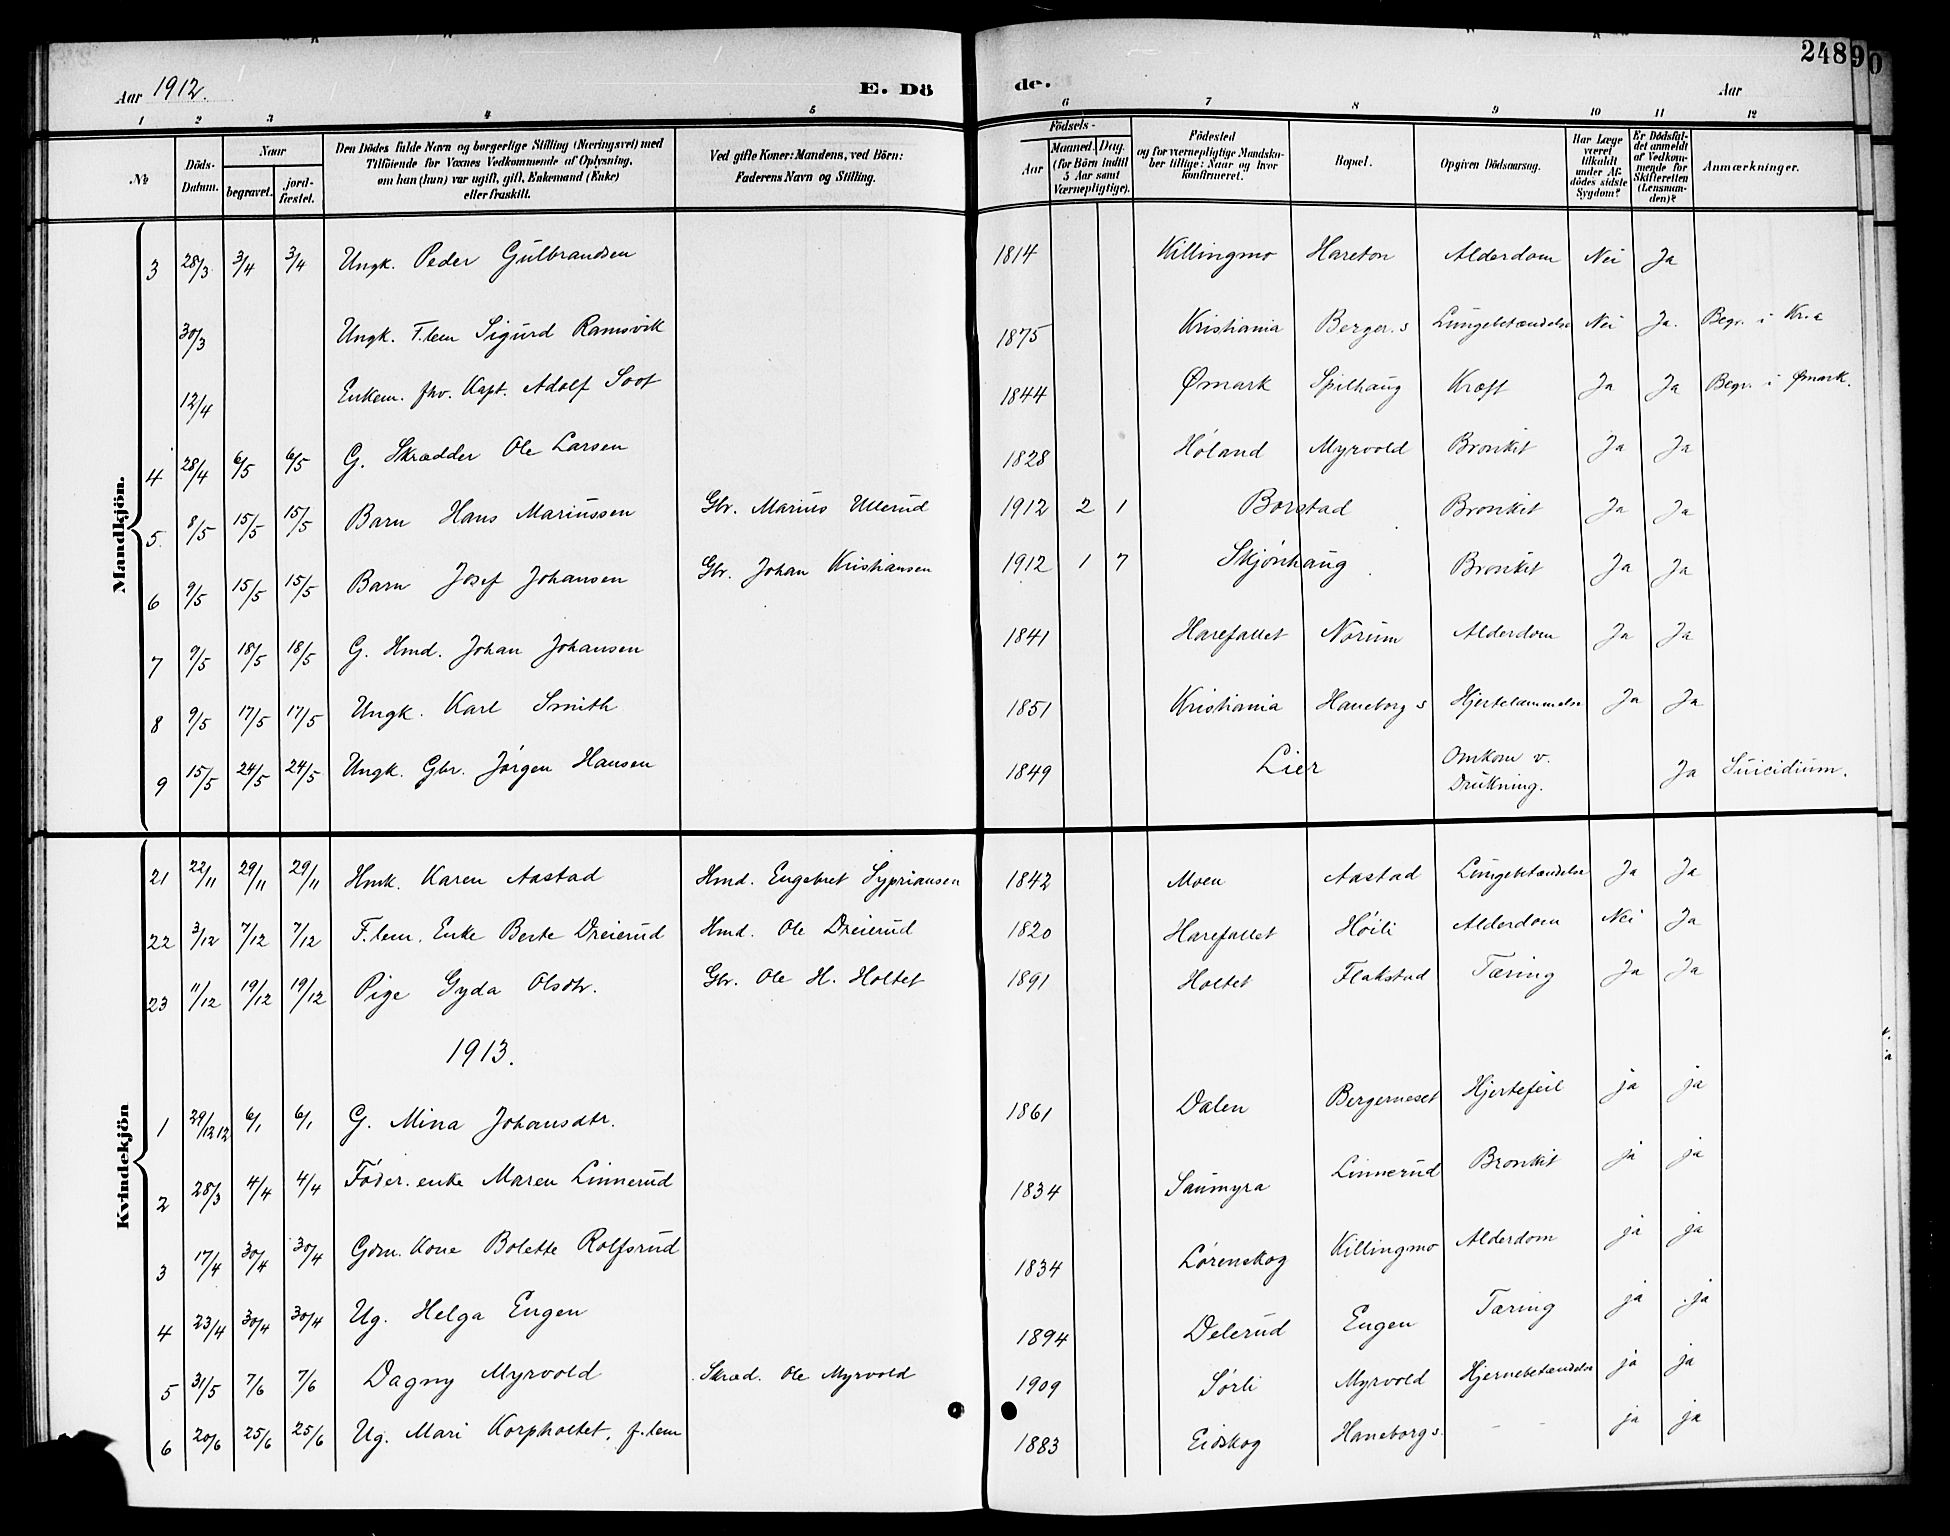 Aar 1912. E. Dö de. Aar 248 9 0
1 2 3 4 5 6 7 8 9 10 11 12
No Döds-Datum. Naar begravet. jord-fæstet. Den Dödes fulde Navn og borgerlige Stilling (Næringsvei) med Tilföiende for Voxnes Vedkommende af Oplysning, om han (hun) var ugift, gift, Enkemand (Enke) eller fraskilt. Ved gifte Koner: Mandens, ved Börn: Faderens Navn og Stilling. Födsels- Aar Maaned. Dag. (for Börn indtil 5 Aar samt Værnepligtige). Födested og for værnepligtige Mandskaber tillige: Naar og hvor konfirmeret. Bopæl. Opgiven Dödsaarsag. Har Læge været tilkaldt under Afdödes sidste Sygdom? Er Dödsfaldet anmeldt af Vedkommende for Skifteretten (Lensmanden)? Anmærkninger.
Mandkjön.
3 28/3 3/4 3/4 Ungk. Peder Gulbrandsen 1814 Killingmo Hareton Alderdom Nei Ja
30/3 Ungk. F.lem Sigurd Ramsvik 1875 Kristiania Berger.s Lungebetændelse Nei Ja. Begr. i Kr.a
12/4 Enkem. fhv. Kapt. Adolf Soot 1844 Ømark Spilhaug Kræft Ja Ja Begr. i Ømark.
4 28/4 6/5 6/5 G. Skrædder Ole Larsen 1828 Høland Myrvold Bronkit Ja Ja
5. 8/5 15/5 15/5 Barn Hans Mariussen Gbr. Marius Ullerud 1912 2 1 Borstad Bronkit Ja Ja
6 9/5 15/5 15/5 Barn Josef Johansen Gbr. Johan Kristiansen 1912 1 7 Skjønhaug Bronkit Ja Ja
7 9/5 18/5 18/5 G. Hmd. Johan Johansen 1841 Harefallet Norum Alderdom Ja Ja
8 9/5 17/5 17/5 Ungk. Karl Smith 1851 Kristiania Haneborg s Hjertelammelse Ja Ja
9 15/5 24/5 24/5 Ungk. Gbr. Jørgen Hansen 1849 Lier Omkom v. Drukning. Ja Suicidium.
Kvindekjön
21 22/11 29/11 29/11 Hmk. Karen Aastad Hmd. Engebret Sypriansen 1842 Moen Aastad Lungebetændelse Ja Ja
22 3/12 7/12 7/12 F.lem. Enke Berte Dreierud Hmd. Ole Dreierud 1820 Harefallet Høili Alderdom Nei Ja
23 11/12 19/12 19/12 Pige Gyda Olsdtr. Gbr. Ole H. Holtet 1891 Holtet Flakstad Tæring Ja Ja
1913.
1 29/12 12 6/1 6/1 G. Mina Johansdtr. 1861 Dalen Bergerneset Hjertefeil ja ja
2 28/3 4/4 4/4 Føder. enke Maren Linnerud 1834 Saumyra Linnerud Bronkit ja ja
3 17/4 30/4 30/4 Gdm. Kone Bolette Rolfsrud 1834 Lørenskog Killingmo Alderdom ja ja
4 23/4 30/4 30/4 Ug. Helga Engen 1894 Delerud Engen Tæring ja ja
5 31/5 7/6 7/6 Dagny Myrvold Skræd. Ole Myrvold 1909 Sørli Myrvold Hjernebetændelse ja ja
6 20/6 25/6 25/6 Ug. Mari Korpholtet, f.lem 1883 Eidskog Haneborg s. - - ja ja